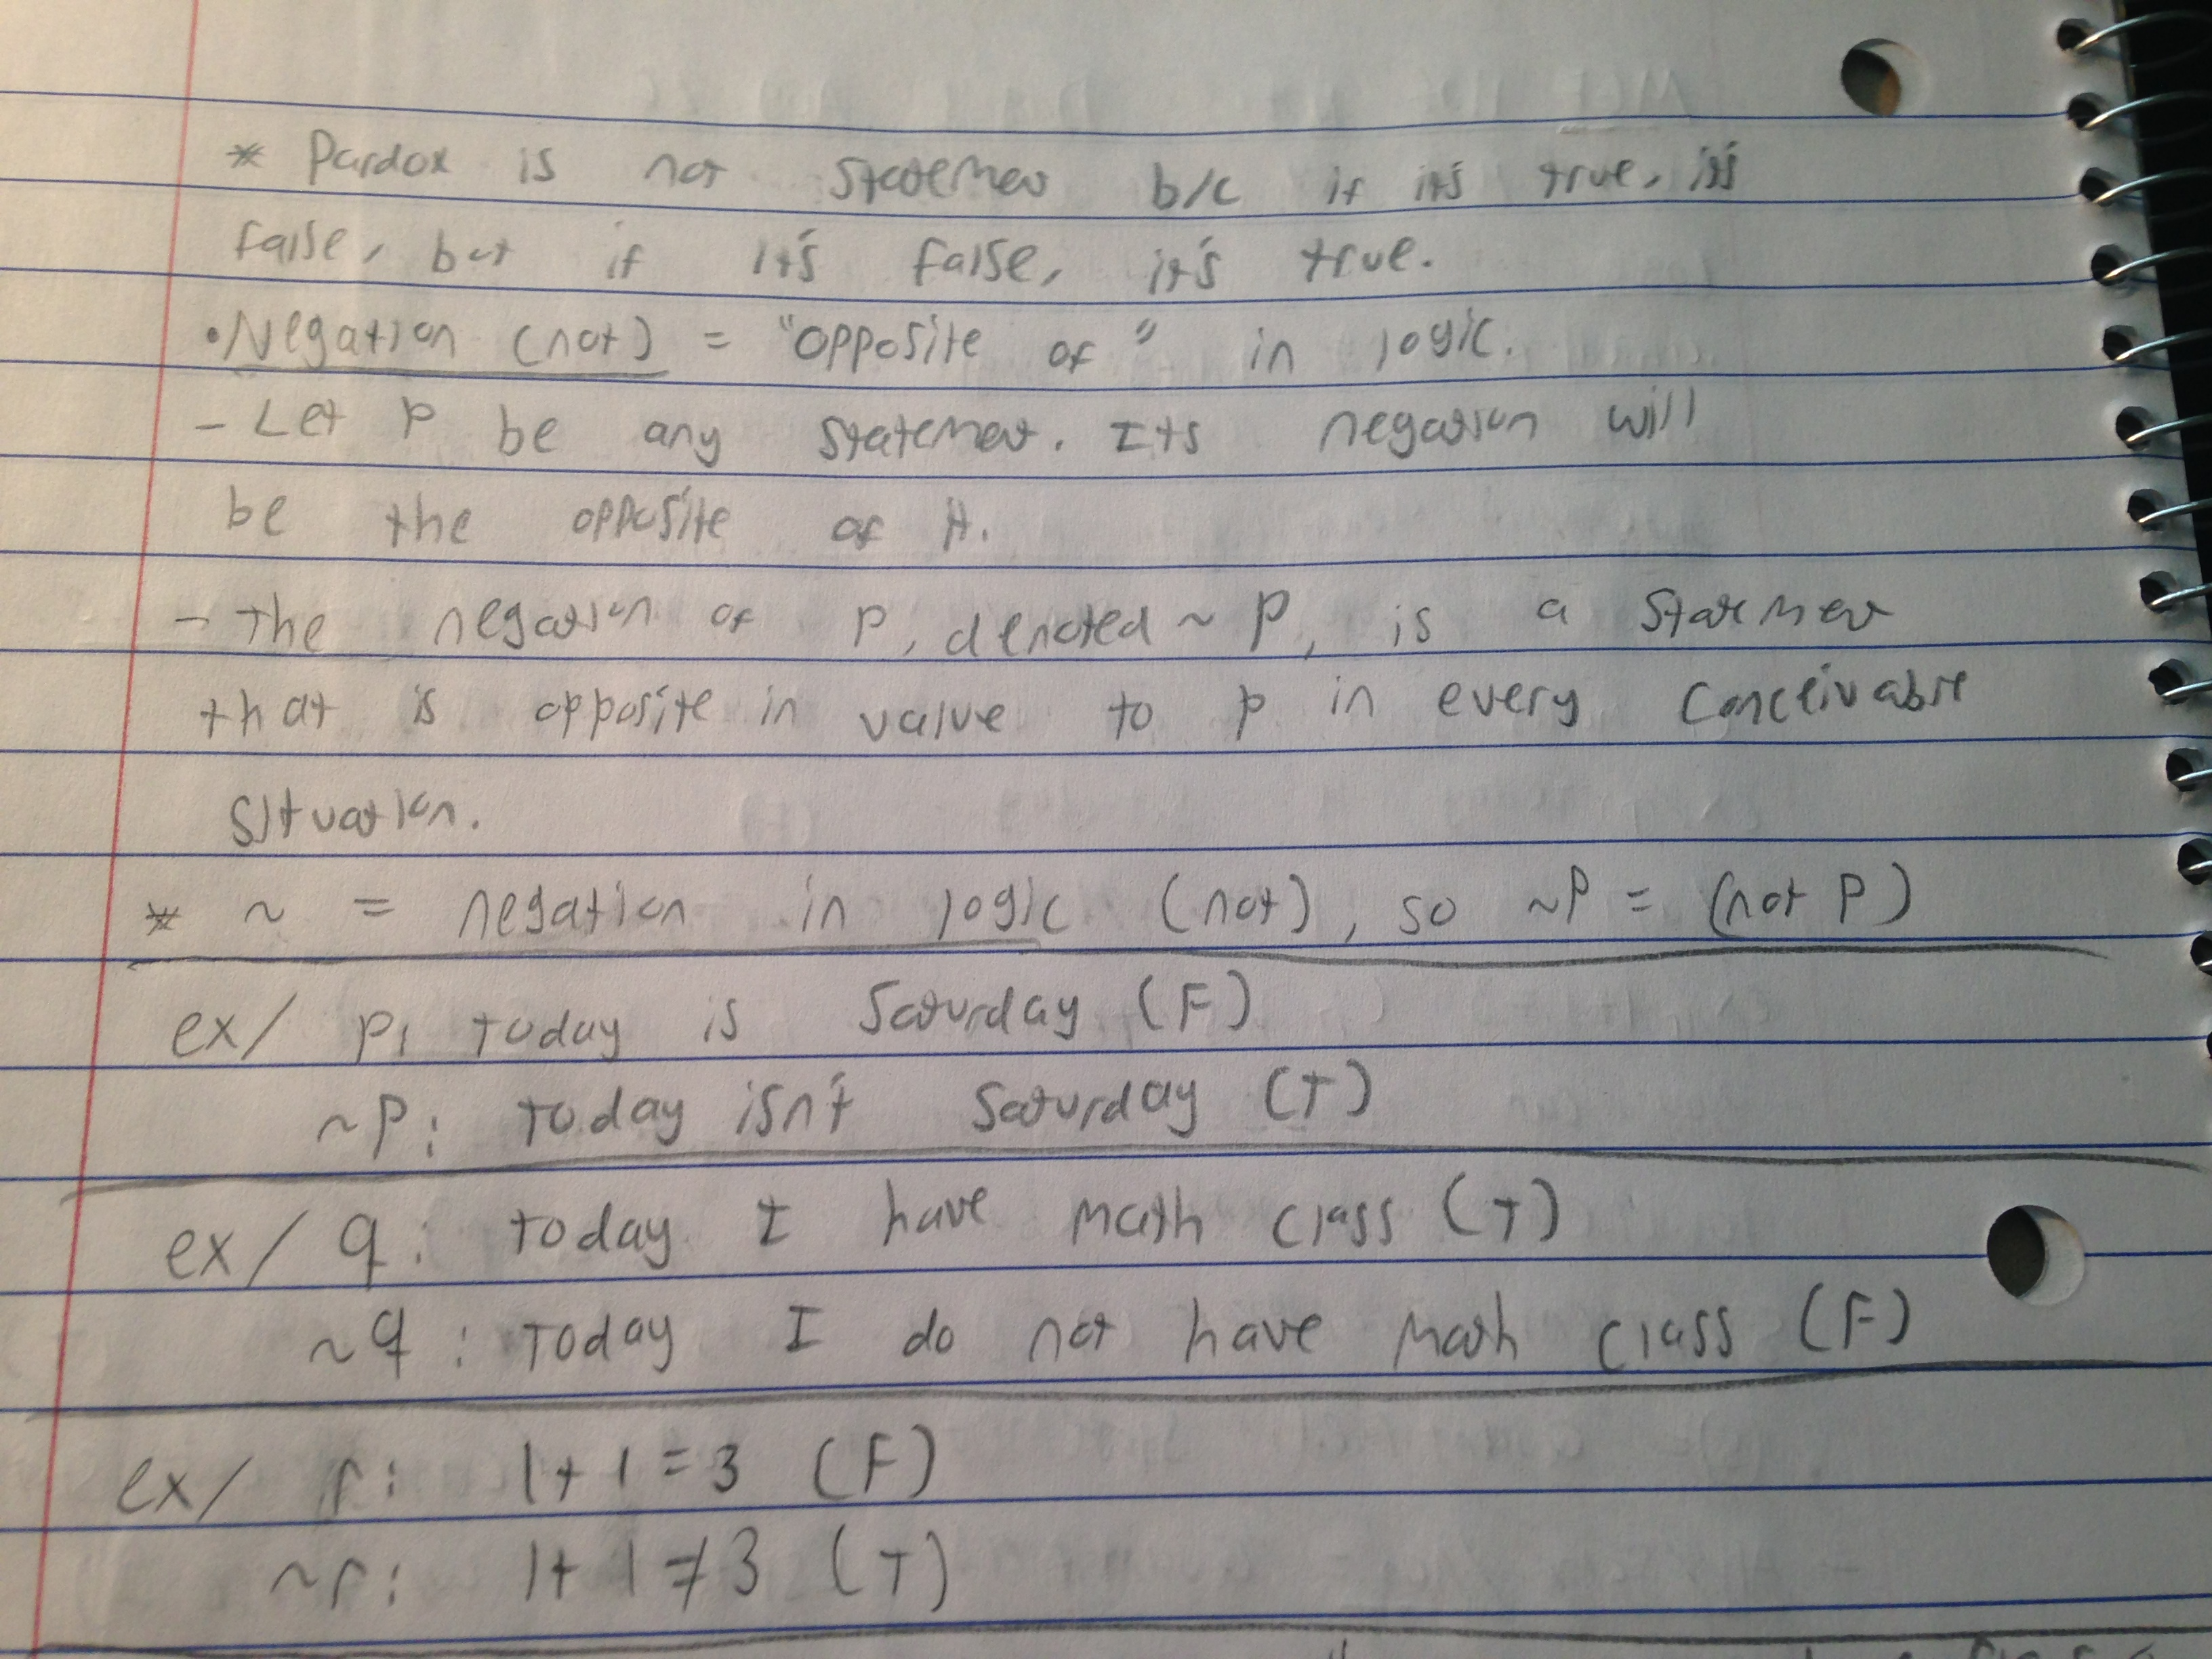 * Pardox is not statement b/c if it's true, it's
false, but if it's false, it's true.
• Negation (not) = "opposite of" in logic.
- Let P be any statement. Its negation will
be the opposite of it.
- The negation of P, denoted ~ P, is a statement
that is opposite in value to p in every conceivable
situation.
* ~ = negation in logic (not), so ~P = (not P)
ex/ p: today is Saturday (F)
~P: today isn't Saturday (T)
ex/ q: today I have math class (T)
~q: Today I do not have math class (F)
ex/ r: 1+1=3 (F)
~r: 1+1≠3 (T)